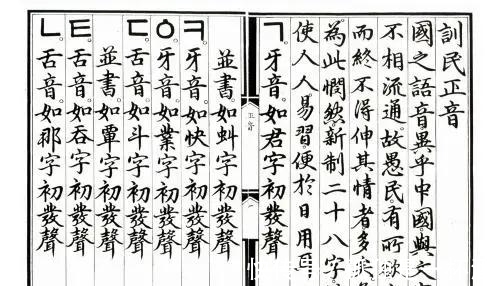 訓民正音
國之語音。異乎中國。與文
不相流通。故愚民。有所欲
而終不得伸其情者。多矣
為此憫然。新制二十八字
使人人易習。便於日用耳
ㄱ。牙音。如君字初發聲
正音
並書。如虯字初發聲
ㅋ。牙音。如快字初發聲
ㆁ。牙音。如業字初發聲
ㄷ。舌音。如斗字初發聲
並書。如覃字初發聲
ㅌ。舌音。如呑字初發聲
ㄴ。舌音。如那字初發聲